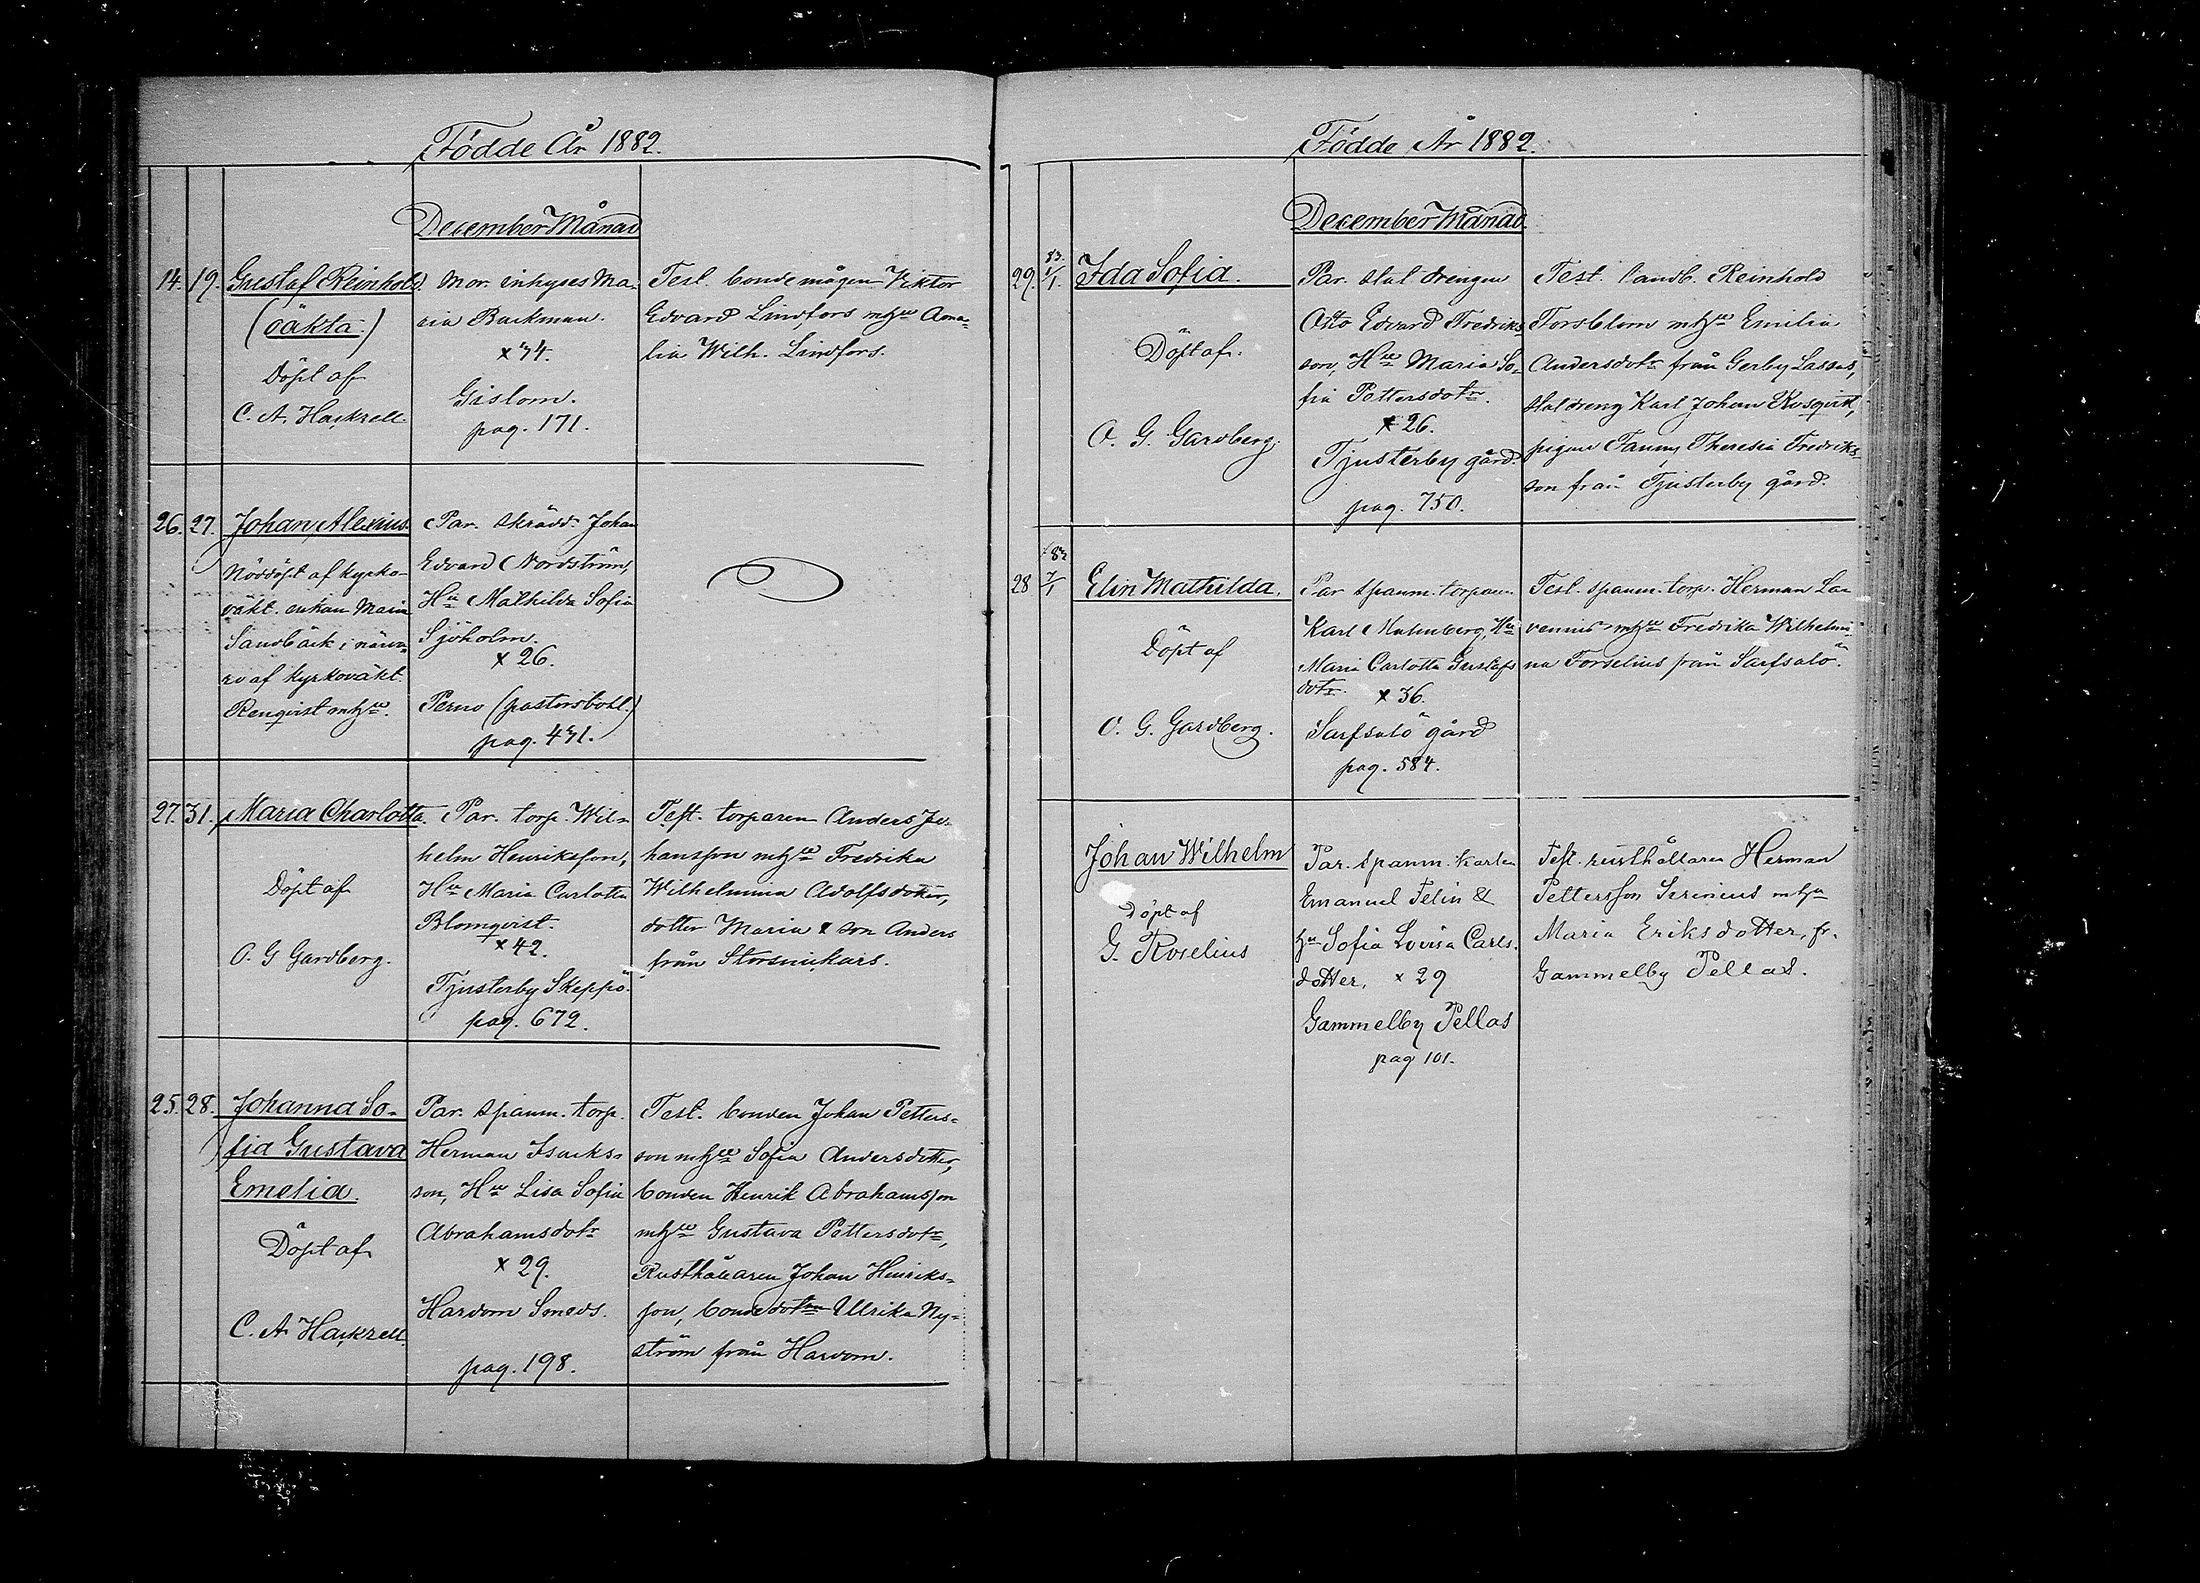 Födde År 1882.
December Månad
14. 19. Gustaf Reinhold.
(oäkta.)
Döpt af
C. A. Hackzell.
Mor. inhyses Ma-
ria Backman.
x 34.
Gislom.
pag. 171.
Test. bondemågen Viktor
Edvard Lindfors mhu Ama-
lia Wilh. Lindfors.
26. 27. Johan Alexius.
Nöddöpt af kyrko-
väkt. enkan Maria
Sandbäck i närva-
ro af kyrkoväkt.
Renqvist mhu.
Par. skrädd. Johan
Edvard Nordström,
Hu Mathilda Sofia
Sjöholm.
x 26.
Perno (pastorsbohl.)
pag. 431.
27. 31. Maria Charlotta.
Döpt af
O. G Gardberg.
Par. torp. Wil-
helm Henriksson,
Hu Maria Carlotta
Blomqvist.
x 42.
Tjusterby Skeppö.
pag. 672.
Test. torparen Anders Jo-
hansson mhu Fredrika
Wilhelmina Adolfsdotter,
dotter Maria & son Anders
från
25. 28. Johanna So-
fia Gustava
Emelia.
Döpt af
C. A. Hackzell.
Par. spanm. torp.
Herman Isaks-
son, Hu Lisa Sofia
Abrahamsdotr
x 29.
Hardom Smeds.
pag. 198.
Test. bonden Johan Petters-
son mhu Sofia Andersdotter,
bonden Henrik Abrahamsson
mhu Gustava Pettersdotr,
Rusthållaren Johan Henriks-
son, bondedotrn Ulrika Ny-
ström från Hardom.
Födde År 1882.
December Månad.
29. 83. 1/1. Ida Sofia.
Döpt af.
O. G. Gardberg.
Par. staldrengen
Otto Edvard Fredriks-
son, Hu Maria So-
fia Pettersdotr.
x 26.
Tjusterby gård.
pag. 750.
Test. landb. Reinhold
Forsblom mhu Emilia
Andersdotr från Gerby Lassas,
staldreng Karl Johan Rosqvist,
pigan Fanny Theresia Fredriks-
son från Tjusterby gård.
28 83 7/1 Elin Mathilda.
Döpt af
O. G. Gardberg.
Par spanm. torparn
Karl Malmberg, Hu
Maria Carlotta Gustafs
dotr. x 36.
Sarfsalö gård
pag. 584.
Test. spanm. torp. Herman La-
venius mhu Fredrika Wilhelmi-
na Forselius från Sarfsalö.
Johan Wilhelm
Döpt af
G. Roselius
Par. spanm. karlen
Emanuel Felin &
hu Sofia Lovisa Carls-
dotter. x 29
Gammelby Pellas
pag 101.
Test. rusthållaren Herman
Pettersson Serenius mhu
Maria Eriksdotter, fr.
Gammelby Pellas.